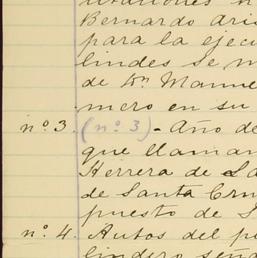 Bernardo Aris
para la ejecu
lindes se m
de Dn. Manue
mero en su
nº 3. (nº 3) - Año de
que llaman
Herrera de La
de Santa Cru
puesto de S
nº 4. Autos del p
lindero seña